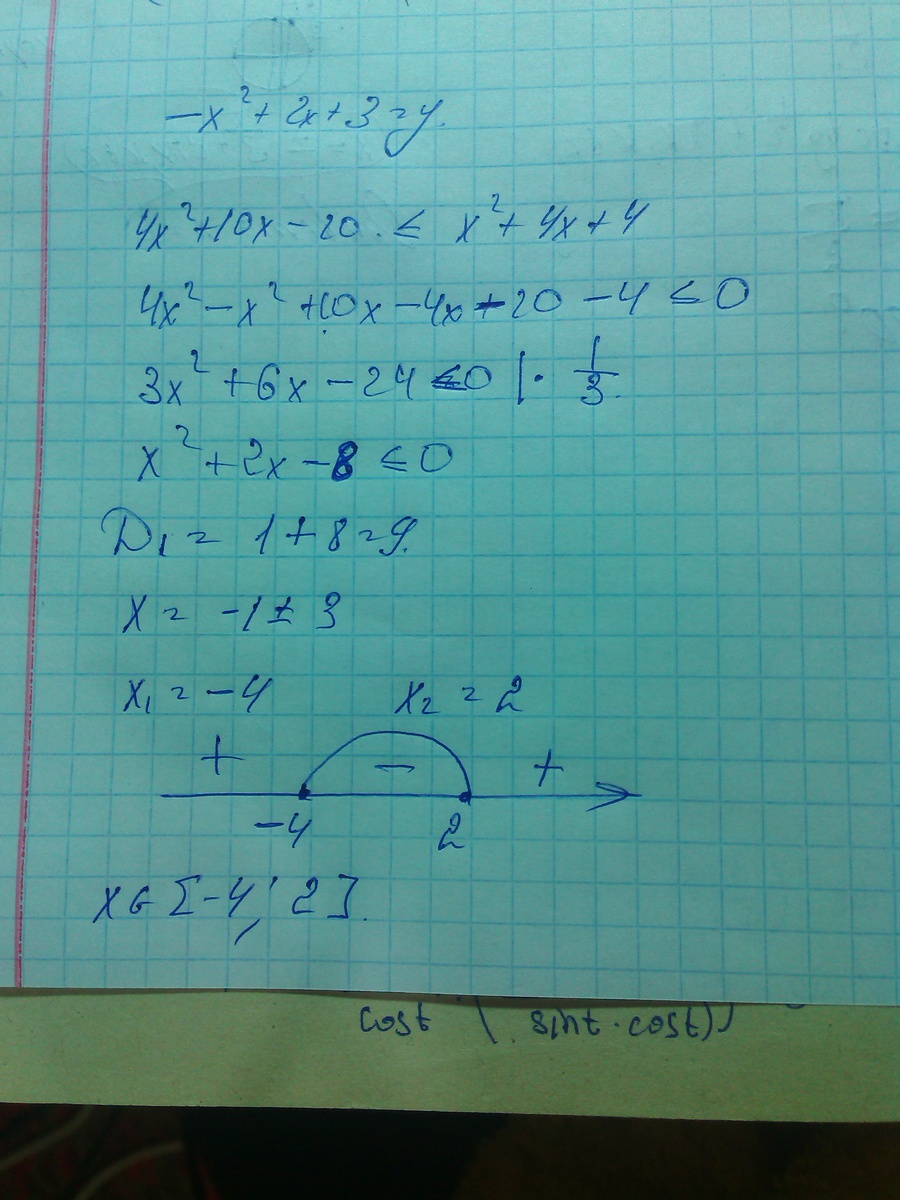 -x² + 2x + 3 = y.
4x² + 10x - 20 ≤ x² + 4x + 4
4x² - x² + 10x - 4x - 20 - 4 ≤ 0
3x² + 6x - 24 ≤ 0 | · 1/3.
x² + 2x - 8 ≤ 0
D₁ = 1 + 8 = 9.
x = -1 ± 3
x₁ = -4 x₂ = 2
+ - +
-4 2
x ∈ [-4; 2].
cost ( sint · cost))